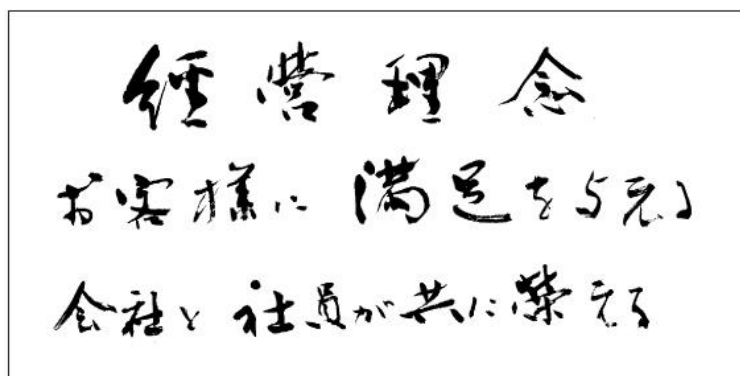 経営理念
お客様に満足を与える
会社と社員が共に栄える